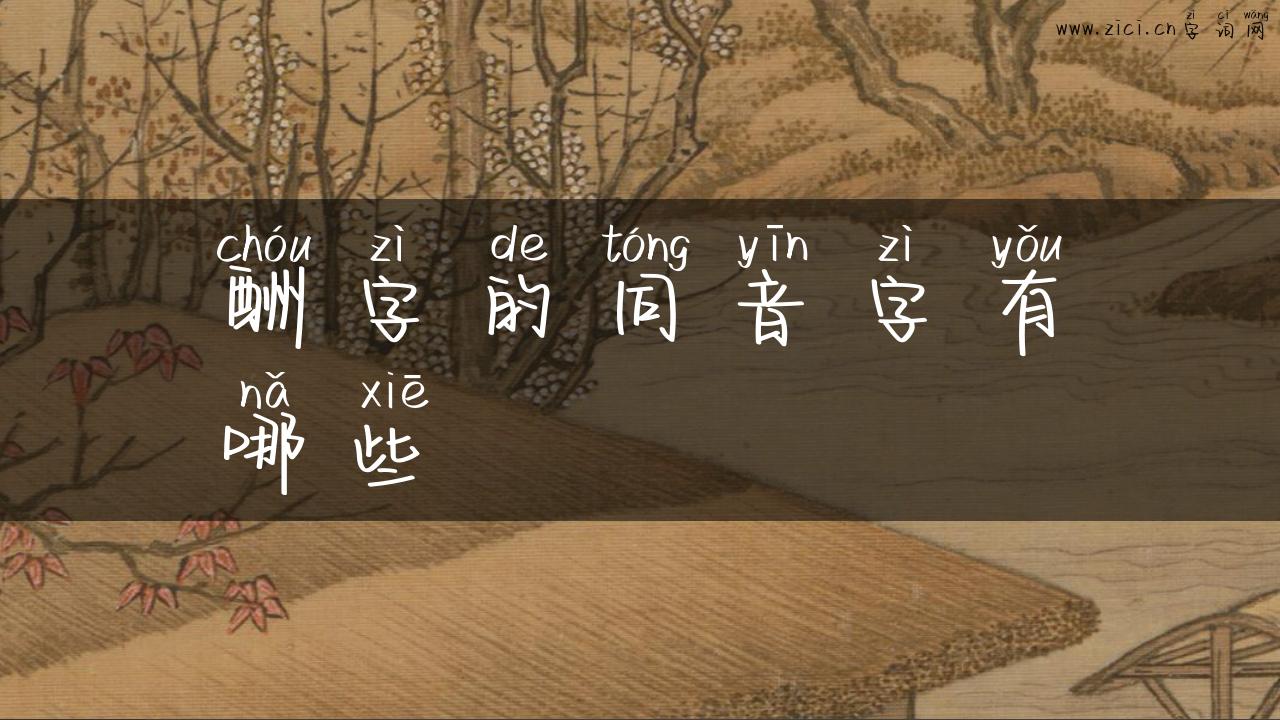 zì cí wǎng
www.zici.cn字词网
chóu zì de tóng yīn zì yǒu
酬字的同音字有
nǎ xiē
哪些